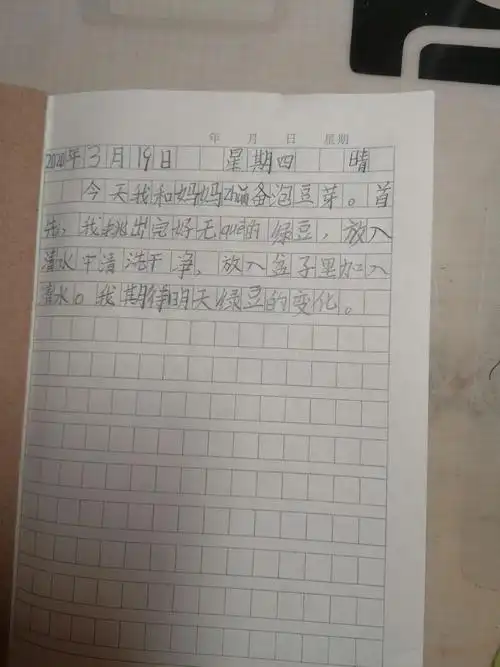 年 月 日 星期
2020年3月19日 星期四 晴
今天我和妈妈zhǔn备泡豆芽。首
先,我挑出完好无quē的绿豆,放入
清水中清洗干净,放入盆子里加入
清水。我期待明天绿豆的变化。